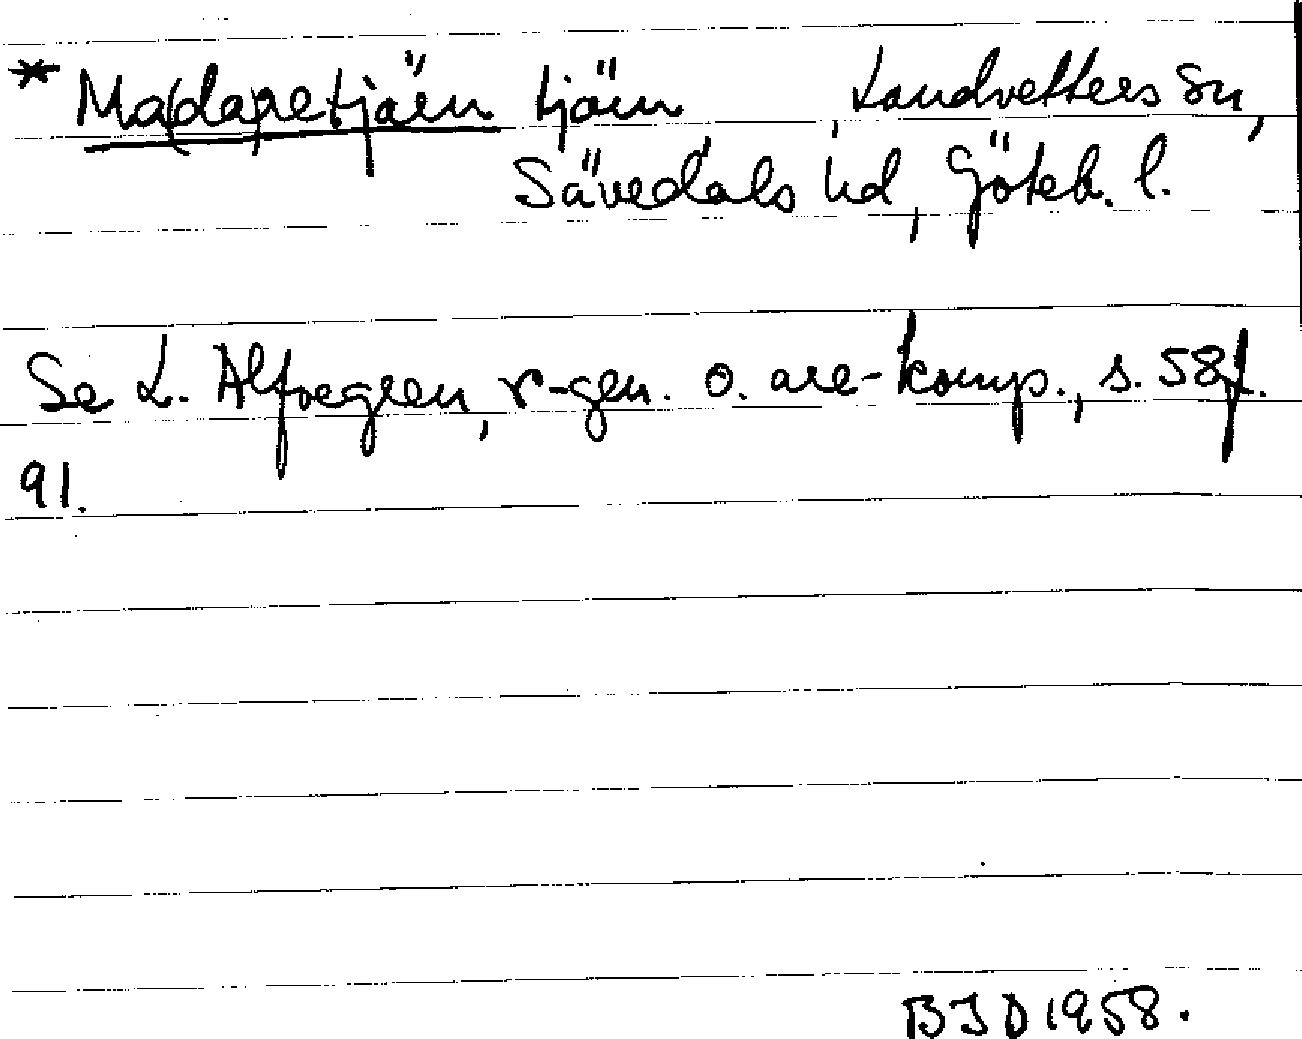 * Ma(da)retjärn tjärn, Landvetters sn,
Sävedals hd, Göteb. l.
Se L. Alfvegren, r-gen. o. are-komp., s. 58f.
91.
BJD 1958.